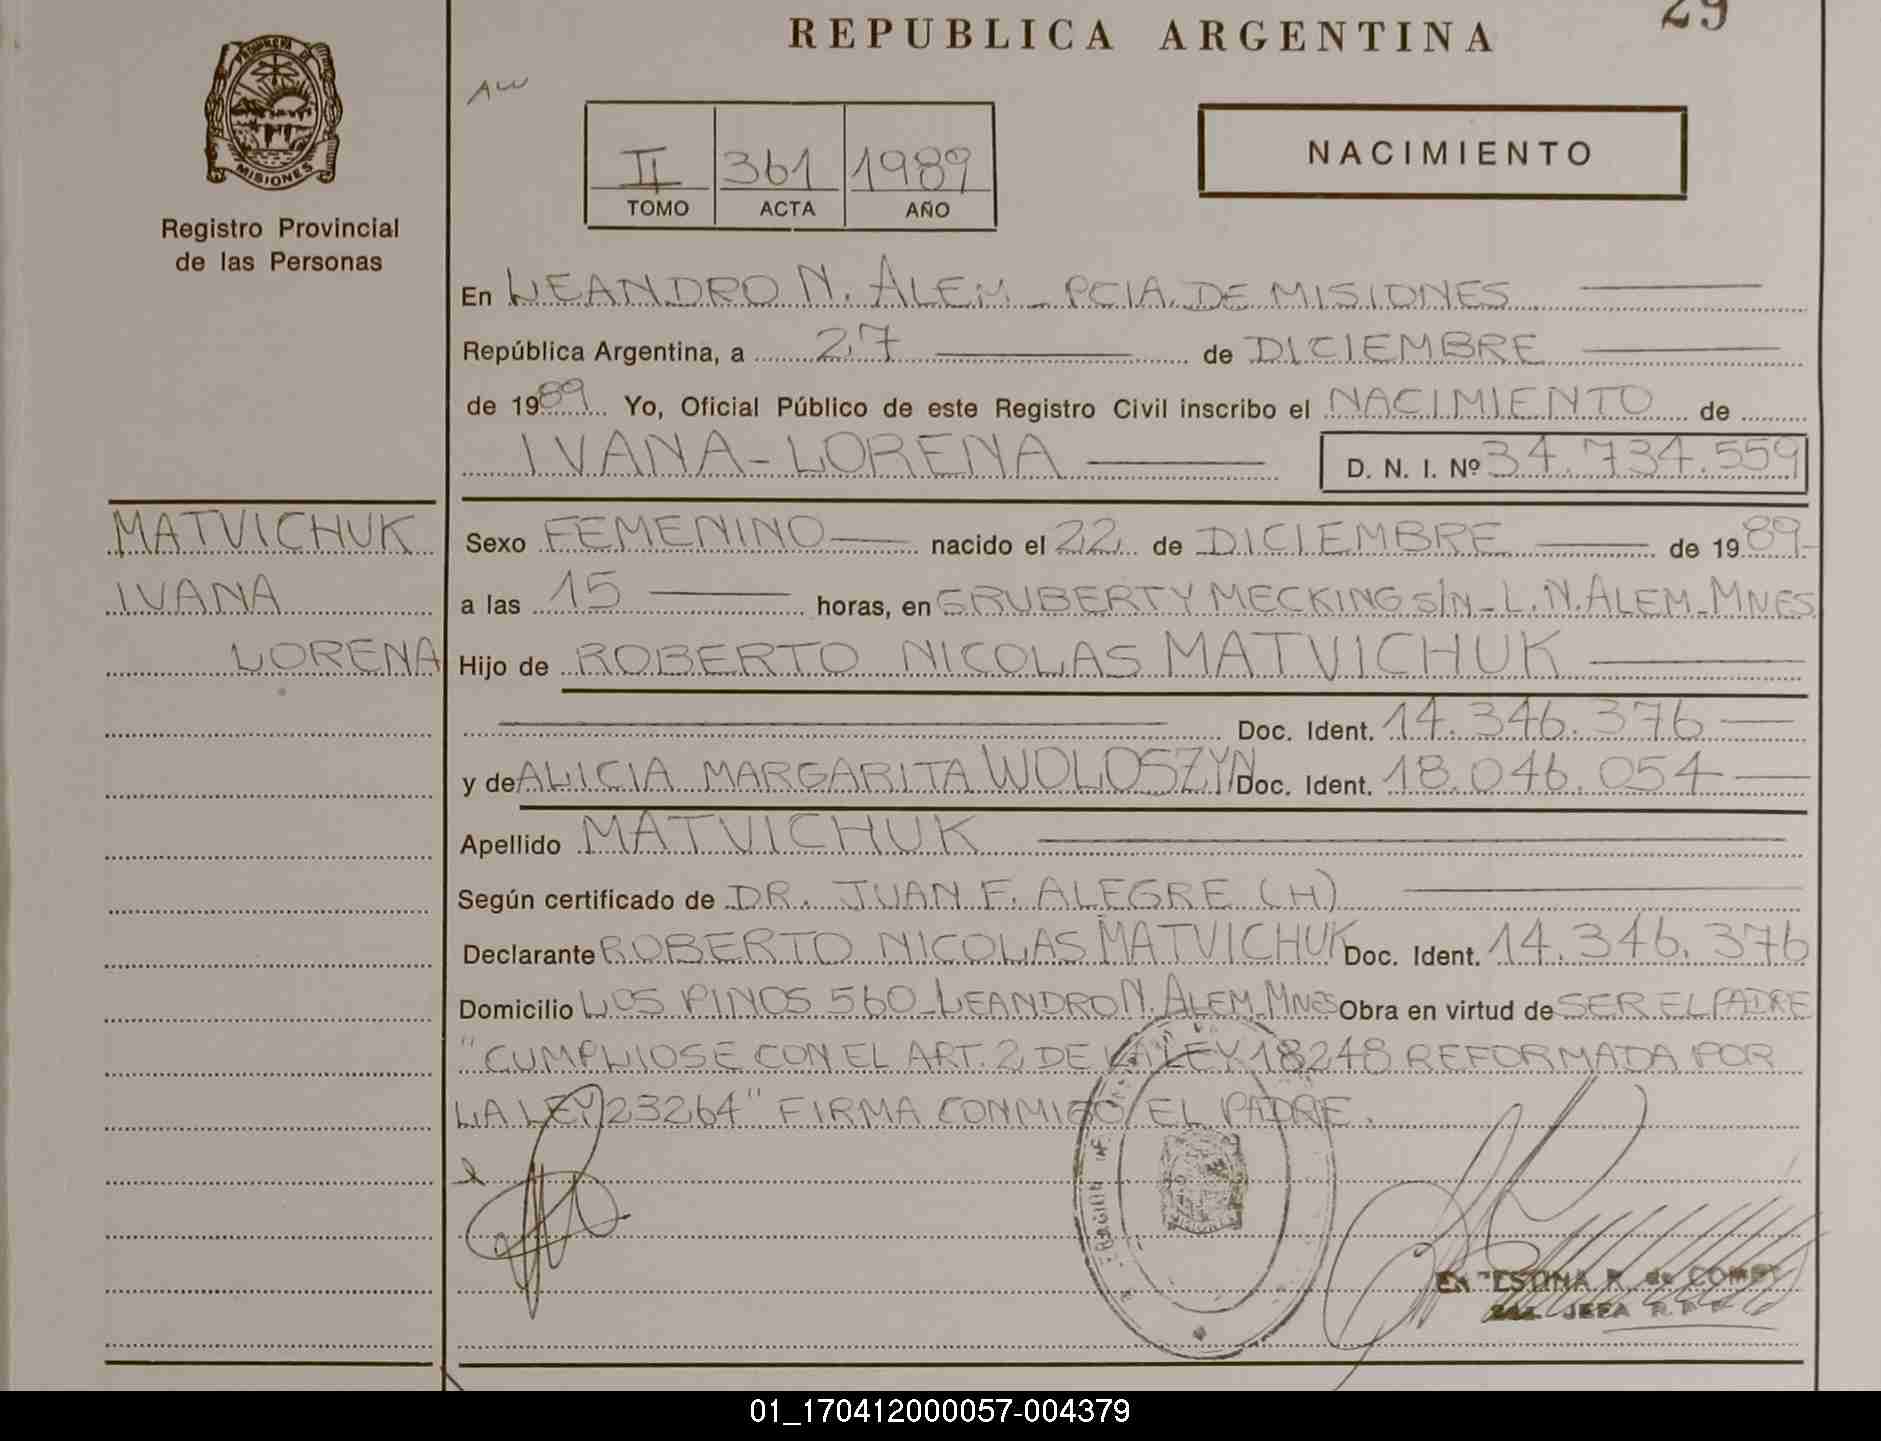 29
REPUBLICA ARGENTINA
PROVINCIA DE
MISIONES
Registro Provincial
de las Personas
II 361 1989
TOMO ACTA AÑO
NACIMIENTO
En LEANDRO N. ALEM - PCIA. DE MISIONES
República Argentina, a 27 de DICIEMBRE
de 1989 Yo, Oficial Público de este Registro Civil inscribo el NACIMIENTO de
IVANA-LORENA D. N. I. Nº 34.734.559
MATVICHUK
IVANA
LORENA
Sexo FEMENINO nacido el 22 de DICIEMBRE de 1989-
a las 15 horas, en GRUBERT Y MECKING S/N - L.N. ALEM - MNES
Hijo de ROBERTO NICOLAS MATVICHUK
Doc. Ident. 14.346.376
y de ALICIA MARGARITA WOLOSZYN Doc. Ident. 18.046.054
Apellido MATVICHUK
Según certificado de DR. JUAN F. ALEGRE (H)
Declarante ROBERTO NICOLAS MATVICHUK Doc. Ident. 14.346.376
Domicilio LOS PINOS 560 - LEANDRO N. ALEM. MNES Obra en virtud de SER EL PADRE
"CUMPLIOSE CON EL ART. 2 DE LA LEY 18248 REFORMADA POR
LA LEY 23264" FIRMA CONMIGO EL PADRE.
R. de
JEFA R.P.P.
01_170412000057-004379